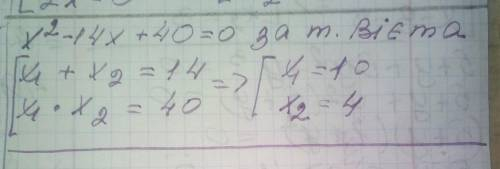 x² - 14x + 40 = 0 за т. Вієта
[x₁ + x₂ = 14 => [x₁ = 10
x₁ · x₂ = 40 x₂ = 4